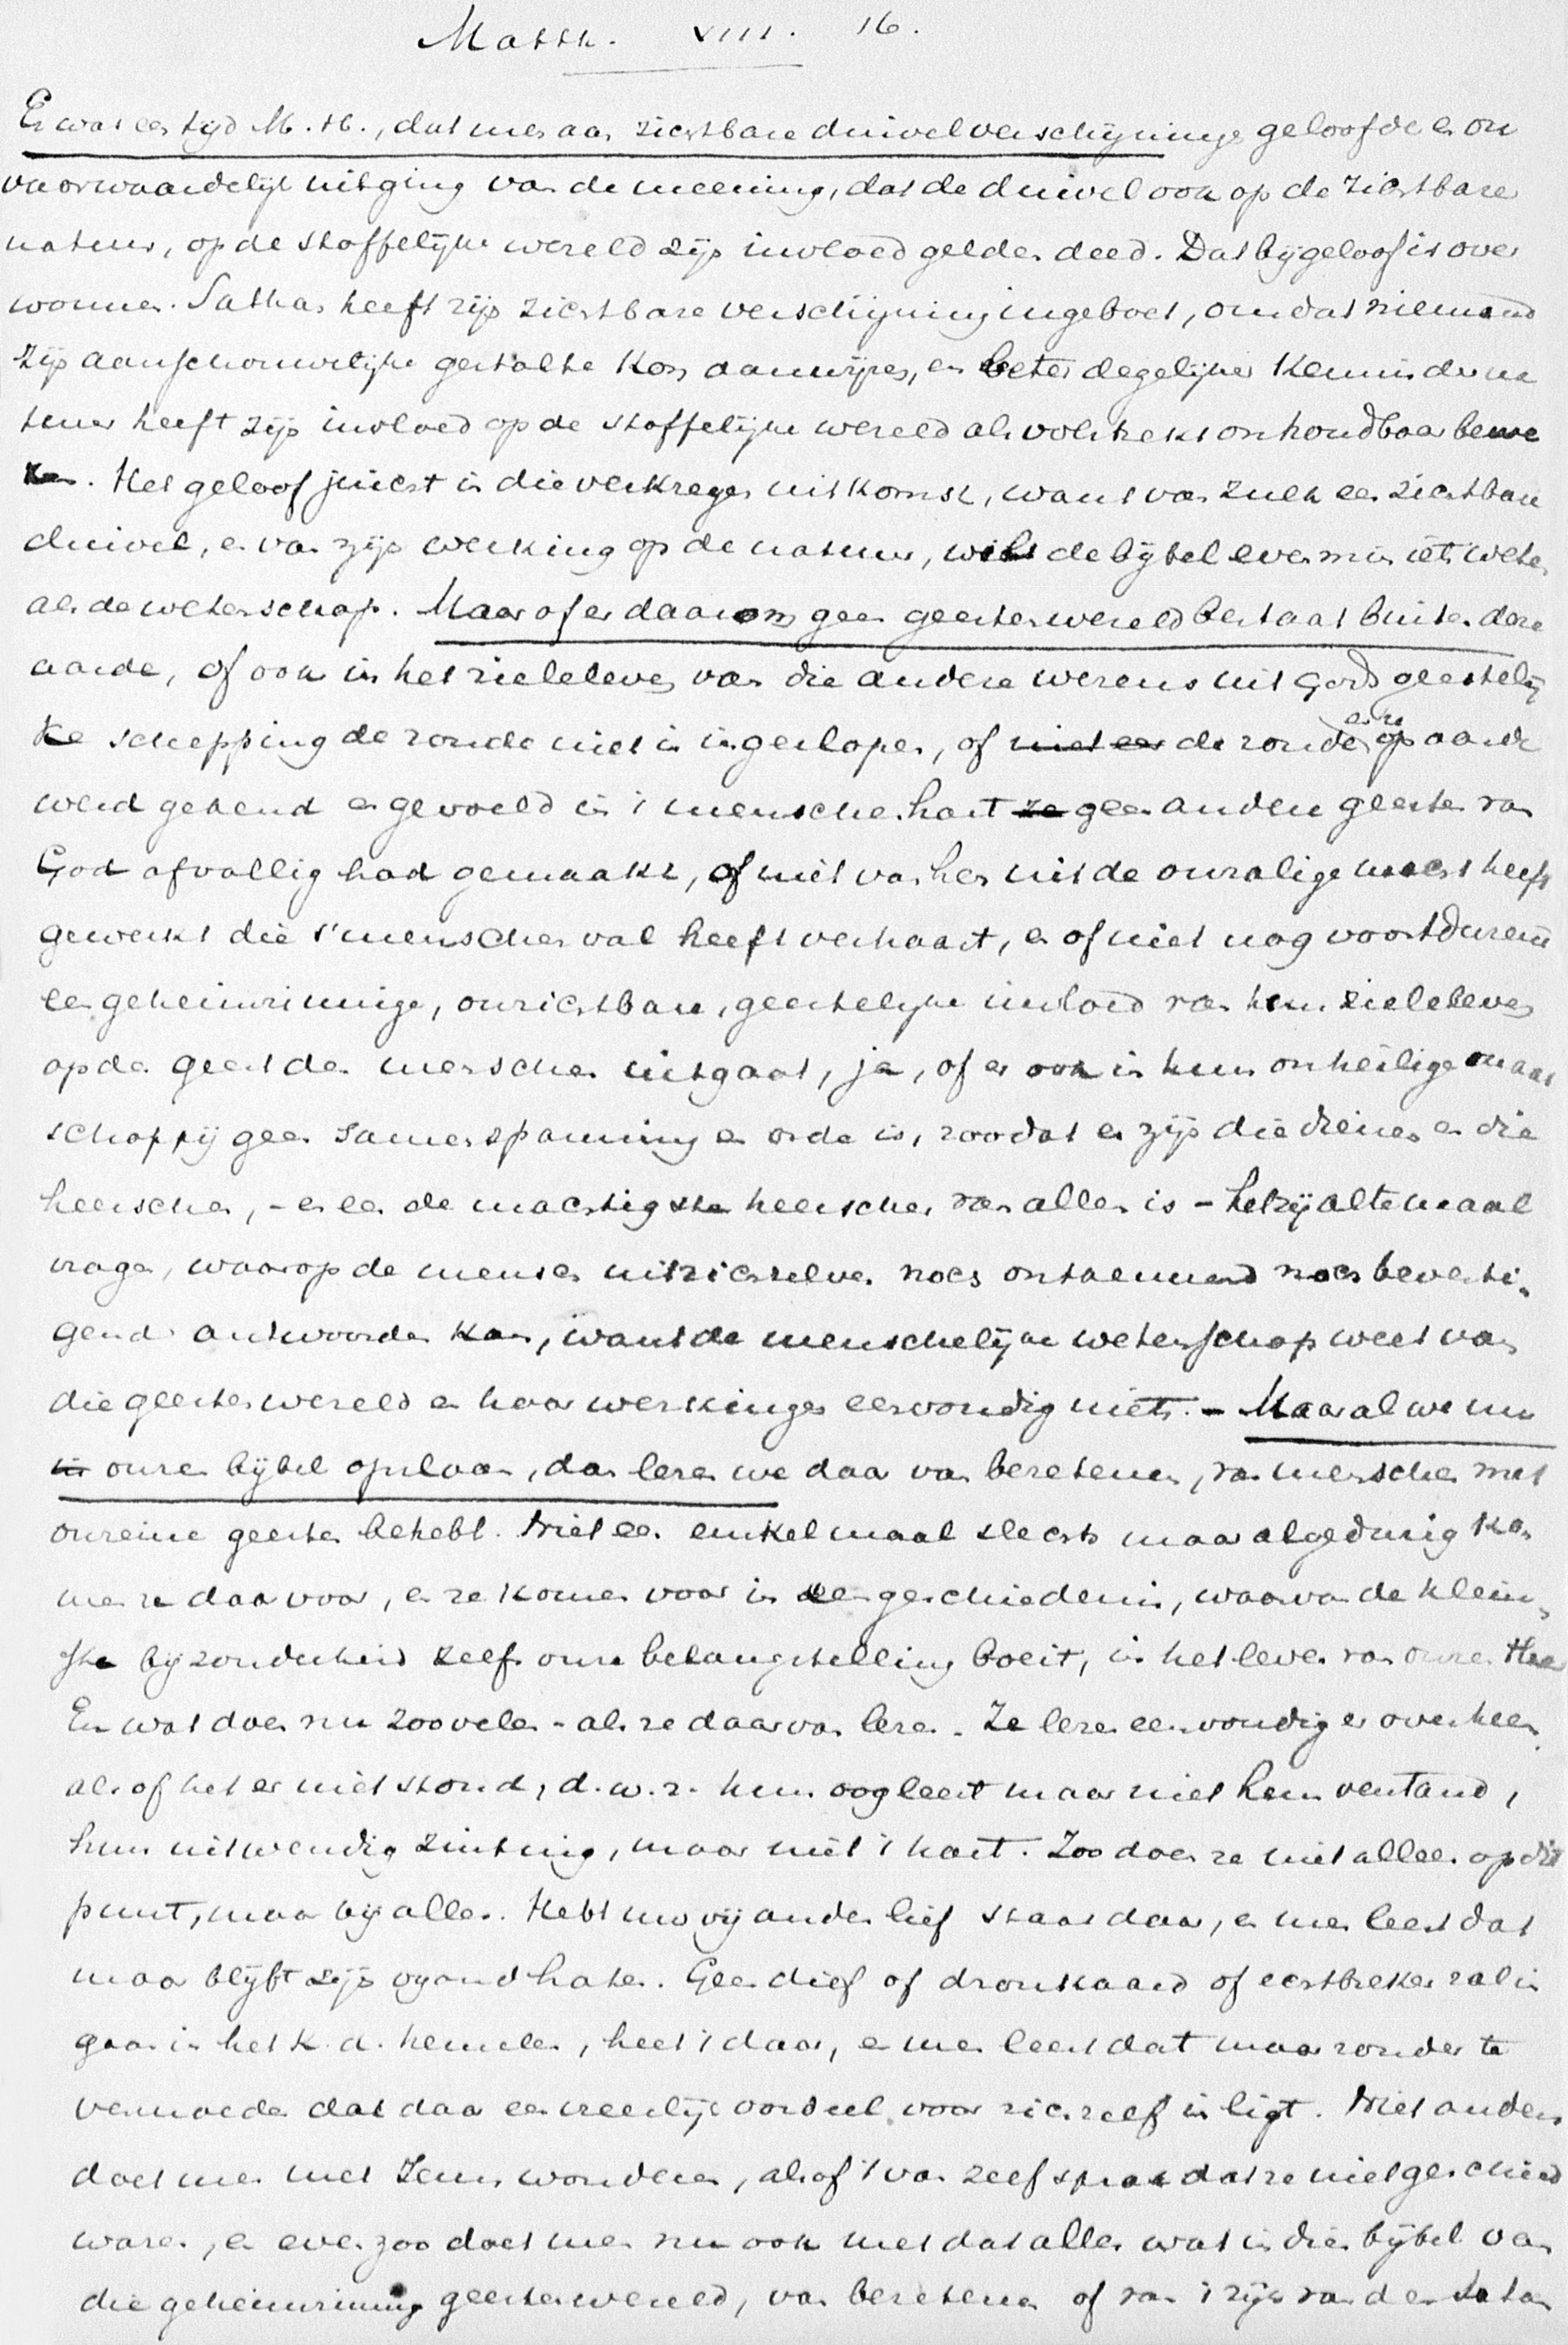 Matth. VIII. 16.
Er was een tijd M. H., dat men aan zichtbare duivelverschijningen geloofde en on
voorwaardelijk uitging van de meening, dat de duivel ook op de zichtbare
natuur, op de stoffelijke wereld zijn invloed gelden deed. Dat bijgeloof is over
wonnen. Sathan heeft zijn zichtbare verschijning ingeboet, omdat niemand
zijn aanschouwelijke gestalte kon aanwijzen, en beter degelijker kennis der na
tuur heeft zijn invloed op de stoffelijke wereld als volstrekt onhoudbaar bewe
zen. Het geloof juicht in die verkregen uitkomst, want van zulk een zichtbare
duivel, en van zijn werking op de natuur, wil de bijbel evenmin iets weten
als de wetenschap. Maar of er daarom geen geestenwereld bestaat buiten deze
aarde, of ook in het zieleleven van die andere wezens uit Gods geestelij
ke schepping de zonde niet is ingeslopen, of niet een de zonde eer ze op aarde
werd gekend en gevoeld in 't menschenhart ze geen andere geesten van
God afvallig had gemaakt, of niet van hen uit de onzalige macht heeft
gewerkt die 's menschen val heeft verhaast, en of niet nog voortdurend
een geheimzinnige, onzichtbare, geestelijke invloed van hun zieleleven
op den geest der menschen uitgaat, ja, of er ook in hun onheilige maat
schappij geen samenspanning en orde is, zoodat er zijn die dienen en die
heerschen, - en een de machtigste heerscher van allen is - hetzij altemaal
vragen, waarop de mensch uit zichzelven noch ontkennend noch bevesti-
gend antwoorden kan, want de menschelijke wetenschap weet van
die geestenwereld en haar werkingen eenvoudig niets. - Maar al we nu
in onzen bijbel opslaan, dan lezen we daar van bezetenen, van menschen met
onreine geesten behebt. Niet een enkel maal slechts maar algedurig ko-
men ze daar voor, en ze komen voor in een geschiedenis, waarvan de klein-
ste bijzonderheid zelfs onze belangstelling boeit, in het leven van onzen Heer
En wat doen nu zoovelen - als ze daarvan lezen. Ze lezen eenvoudig er overheen
alsof het er niet stond, d.w.z. hun oog leest maar niet hun verstand,
hun uitwendig zintuig, maar niet 't hart. Zoo doen ze niet alleen op dit
punt, maar bij alles. Hebt uw vijanden lief staat daar, en men leest dat
maar blijft zijn vijand haten. Geen dief of dronkaard of echtbreker zal in
gaan in het K. d. hemelen, heet 't daar, en men leest dat maar zonder te
vermoeden dat daar een vreeslijk oordeel voor zichzelf in ligt. Niet anders
doet men met Jezus wonderen, alsof 't van zelf sprak dat ze niet geschied
waren, en even zoo doet men nu ook met dat alles wat in dien bijbel van
die geheimzinnig geestenwereld, van bezetenen of van 't rijk van den Satan